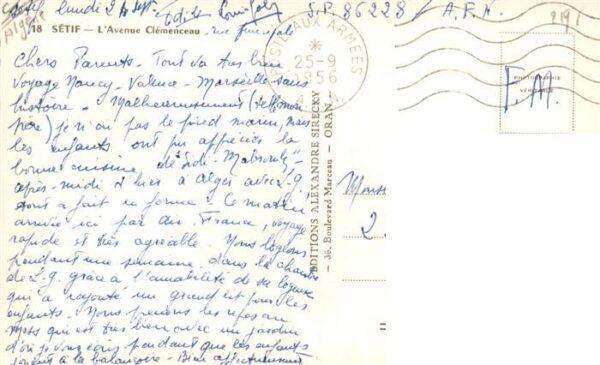 Sétif lundi 24 Sept. S.P. 86228 / A.F.N.
Algérie
18 SÉTIF — L'Avenue Clémenceau, rue principale
Chers Parents - Tout va très bien
Voyage Nancy - Valence - Marseille sans
histoire - Malheureusement (tel mon
père) je n'ai pas le pied marin, mais
les enfants ont pu apprécier la
bonne cuisine du "Sidi-Mabrouk"
après-midi d'hier à Alger avec L.G.
tout à fait en forme. Ce matin,
arrivée ici par Air-France, voyage
rapide et très agréable. Nous logeons
pendant une semaine dans la chambre
de L.G. grâce à l'amabilité de sa logeuse
qui a rajouté un grand lit pour les
enfants. Nous prenons les repas au
Mess qui est très bien avec un jardin
d'où je vous écris pendant que les enfants
jouent à la balançoire - Bien affectueusement
POSTE AUX ARMEES
25-9
1956
A.F.N.
EDITIONS ALEXANDRE SIRECKY
— 36, Boulevard Marceau — ORAN —
PHOTOGRAPHIE
VÉRITABLE
F.M.
Mons
2